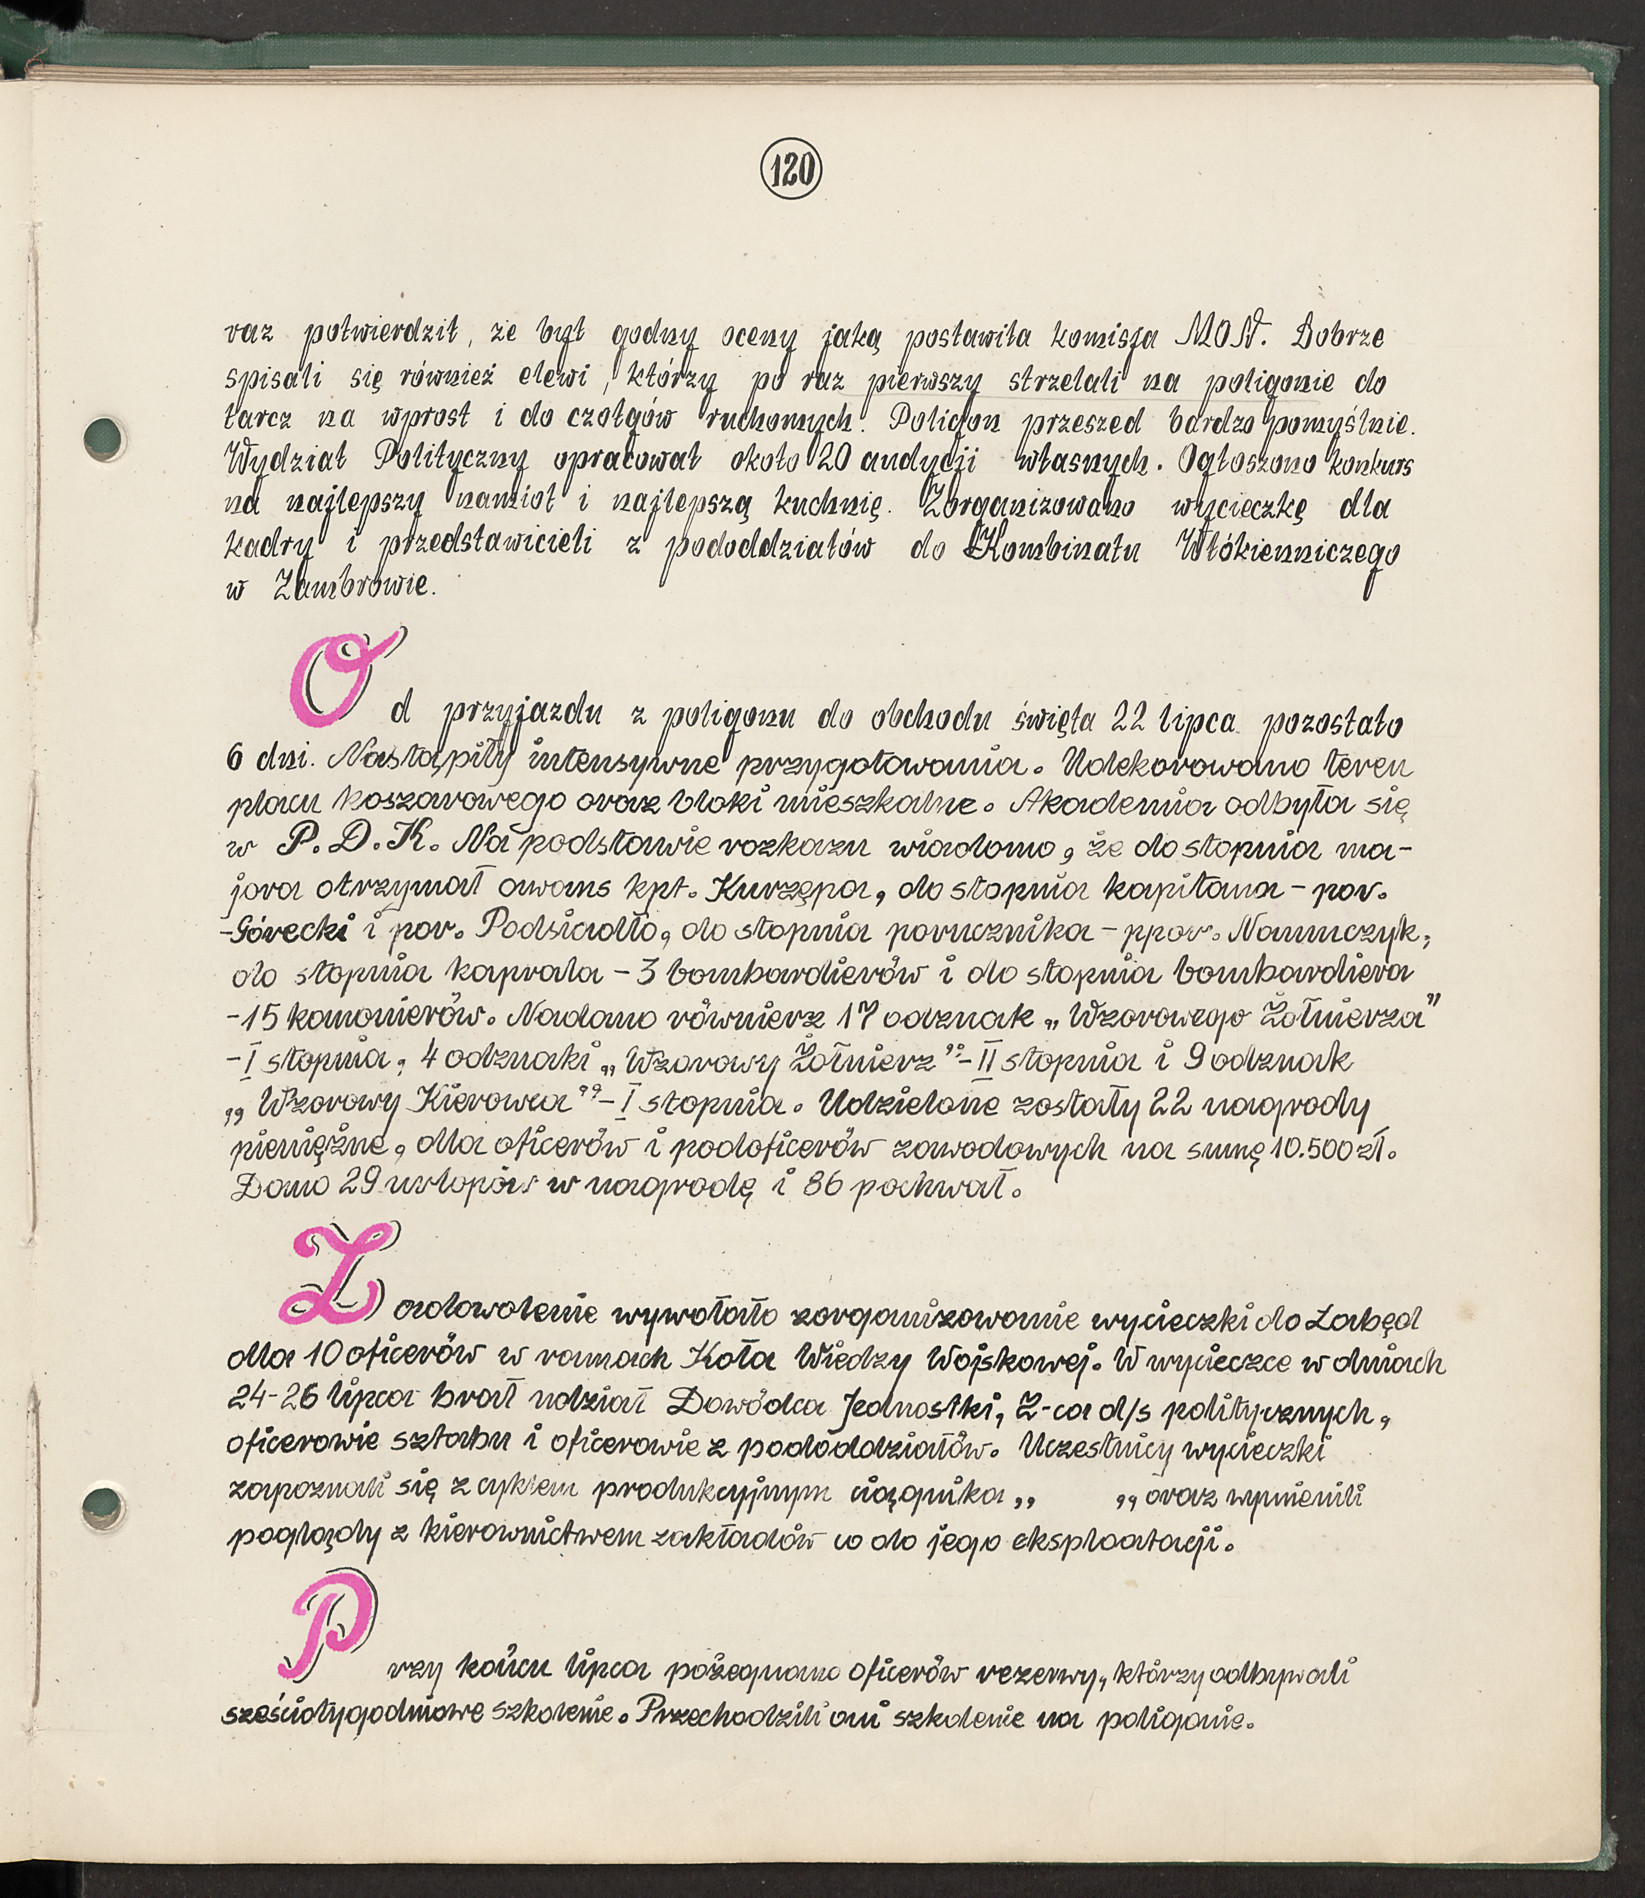 120
raz potwierdził, że był godny oceny jaką postawiła komisja MON. Dobrze
spisali się również elewi, którzy po raz pierwszy strzelali na poligonie do
tarcz na wprost i do czołgów ruchomych. Poligon przeszed bardzo pomyślnie.
Wydział Polityczny opracował około 20 audycji własnych. Ogłoszono konkurs
na najlepszy namiot i najlepszą kuchnię. Zorganizowano wycieczkę dla
kadry i przedstawicieli z pododdziałów do Kombinatu Włókienniczego
w Zambrowie.
Od przyjazdu z poligonu do obchodu święta 22 lipca pozostało
6 dni. Nastąpiły intensywne przygotowania. Udekorowano teren
placu koszarowego oraz bloki mieszkalne. Akademia odbyła się
w P.D.K. Na podstawie rozkazu wiadomo, że do stopnia ma-
jora otrzymał awans kpt. Kurzępa, do stopnia kapitana - por.
-Górecki i por. Podsiadło, do stopnia porucznika - ppor. Naumczyk,
do stopnia kaprala - 3 bombardierów i do stopnia bombardiera
-15 kanonierów. Nadano równierz 17 odznak „Wzorowego Żołnierza”
-I stopnia, 4 odznaki „Wzorowy Żołnierz”- II stopnia i 9 odznak
„Wzorowy Kierowca”- I stopnia. Udzielone zostały 22 nagrody
pieniężne, dla oficerów i podoficerów zawodowych na sumę 10.500 zł.
Dano 29 urlopów w nagrodę i 86 pochwał.
Zadowolenie wywołało zorganizowanie wycieczki do Łabęd
dla 10 oficerów w ramach Koła Wiedzy Wojskowej. W wycieczce w dniach
24-26 lipca brał udział Dowódca Jednostki, Z-ca d/s politycznych,
oficerowie sztabu i oficerowie z pododdziałów. Uczestnicy wycieczki
zapoznali się z cyklem produkcyjnym ciągnika „ „ oraz wymienili
poglądy z kierownictwem zakładów co do jego eksploatacji.
Przy końcu lipca pożegnano oficerów rezerwy, którzy odbywali
sześciotygodniowe szkolenie. Przechodzili oni szkolenie na poligonie.